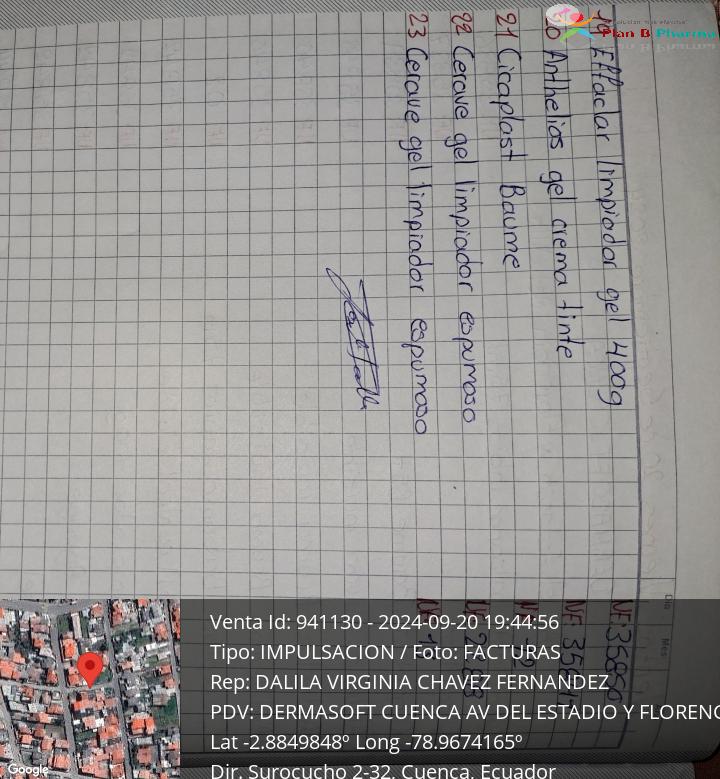 19 Effaclar limpiador gel 400g
20 Anthelios gel crema tinte
21 Cicaplast Baume
22 Cerave gel limpiador espumoso
23 Cerave gel limpiador espumoso
Plan B Pharma
Dia Mes
Venta Id: 941130 - 2024-09-20 19:44:56
Tipo: IMPULSACION / Foto: FACTURAS
Rep: DALILA VIRGINIA CHAVEZ FERNANDEZ
PDV: DERMASOFT CUENCA AV DEL ESTADIO Y FLORENC
Lat -2.8849848º Long -78.9674165º
Dir. Surocucho 2-32, Cuenca, Ecuador
Google